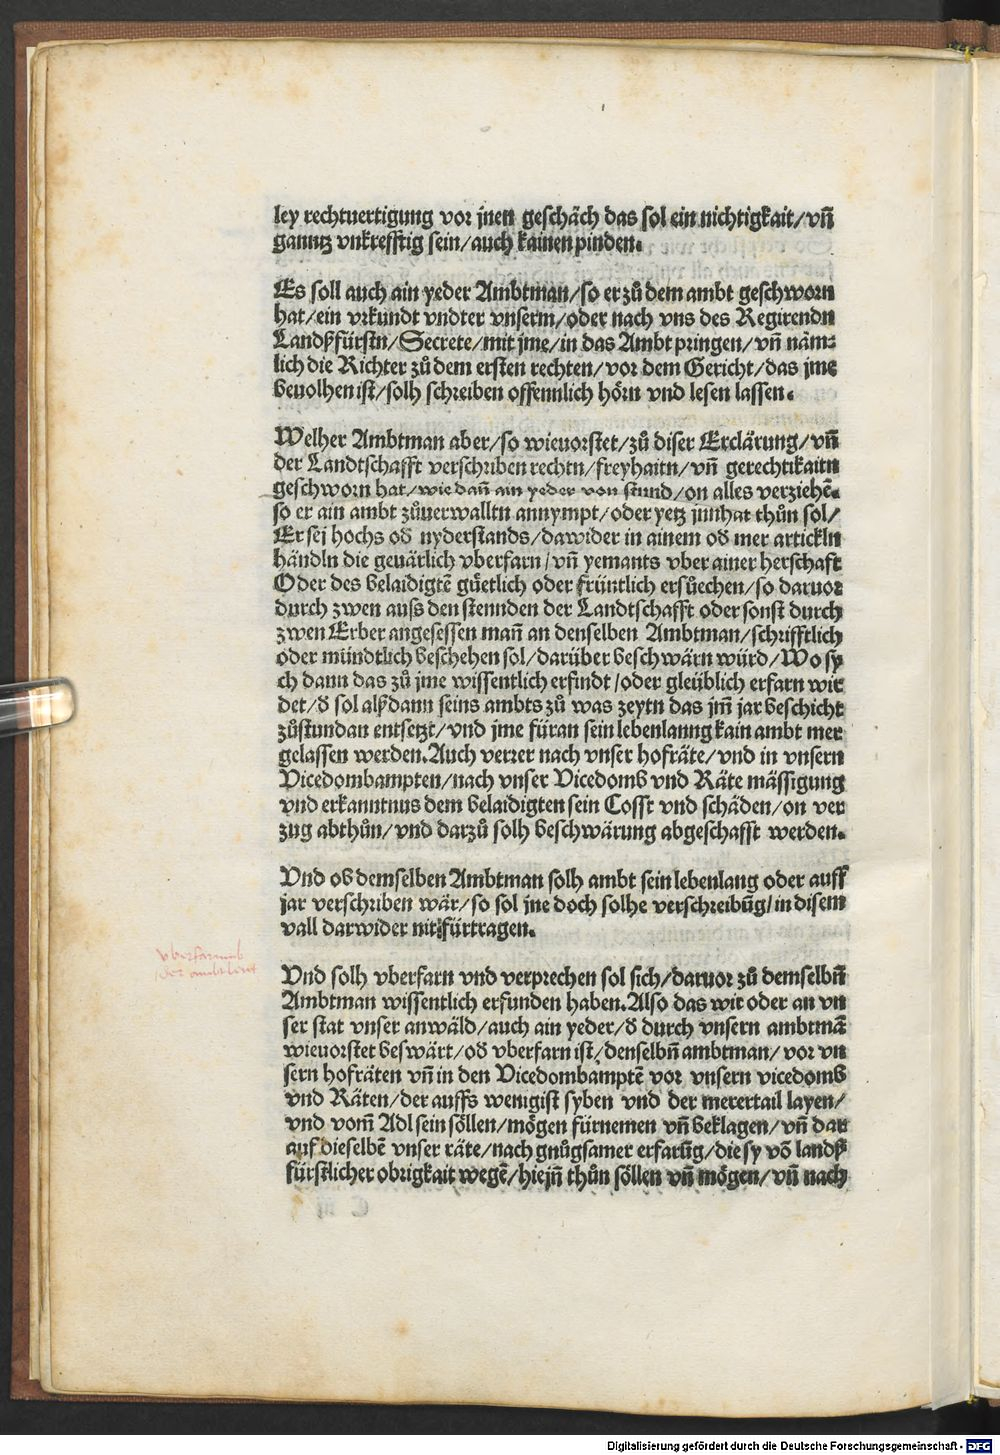 ley rechtuertigung vor jnen geschäch das sol ein nichtigkait/vn̄
ganntz vnkrefftig sein/auch kainen pinden.
Es soll auch ain yeder Ambtman/so er zů dem ambt geschworn
hat/ein vrkundt vndter vnserm/oder nach vns des Regirendn
Landßfürstn/Secrete/mit jme/in das Ambt pringen/vn̄ näm⸗
lich die Richter zů dem ersten rechten/vor dem Gericht/das jme
beuolhen ist/solh schreiben offennlich hörn vnd lesen lassen.
Welher Ambtman aber/so wieuorstet/zů diser Erclärung/vn̄
der Landtschafft verschriben rechtn/freyhaitn/vn̄ gerechtikaitn
geschworn hat/wie dan̄ ain yeder von stund/on alles verziehē.
so er ain ambt zůuerwalltn annympt/oder yetz jnnhat thůn sol/
Er sej hochs oď nyderstands/dawider in ainem oď mer artickln
händln die geuärlich vberfarn/vn̄ yemants vber ainer herschaft
Oder des belaidigtē gůetlich oder früntlich ersůechen/so daruor
durch zwen auß den stennden der Landtschafft oder sonst durch
zwen Erber angesessen man̄ an denselben Ambtman/schrifftlich
oder mündtlich beschehen sol/darüber beschwärn würd/Wo sy
ch dann das zů jme wissentlich erfindt/oder gleüblich erfarn wir
det/ď sol alßdann seins ambts zů was zeytn das jm̄ jar beschicht
zůstundan entsetzt/vnd jme füran sein lebenlanng kain ambt mer
gelassen werden. Auch verrer nach vnser hofräte/vnd in vnsern
Vicedombampten/nach vnser Vicedomb vnd Räte mässigung
vnd erkanntnus dem belaidigten sein Cosst vnd schäden/on ver
zug abthůn/vnd darzů solh beschwärung abgeschafft werden.
Vnd ob demselben Ambtman solh ambt sein lebenlang oder auff
jar verschriben wär/so sol jne doch solhe verschreibūg/in disem
vall darwider nit fürtragen.
vberfarnnb
der ambtleut
Vnd solh vberfarn vnd verprechen sol sich/daruor zů demselbn̄
Ambtman wissentlich erfunden haben. Also das wir oder an vn
ser stat vnser anwäld/auch ain yeder/ď durch vnsern ambtmā
wieuorstet beswärt/oď vberfarn ist/denselbn̄ ambtman/vor vn
sern hofräten vn̄ in den Vicedombämptē vor vnsern vicedomb
vnd Räten/der auffs wenigist syben vnd der merertail layen/
vnd vom̄ Adl sein söllen/mögen fürnemen vn̄ beklagen/vn̄ dar
auf dieselbē vnser räte/nach gnůgsamer erfarūg/die sy vō landß
fürstlicher obrigkait wegē/hiejn̄ thůn söllen vn̄ mögen/vn̄ nach
Digitalisierung gefördert durch die Deutsche Forschungsgemeinschaft - DFG